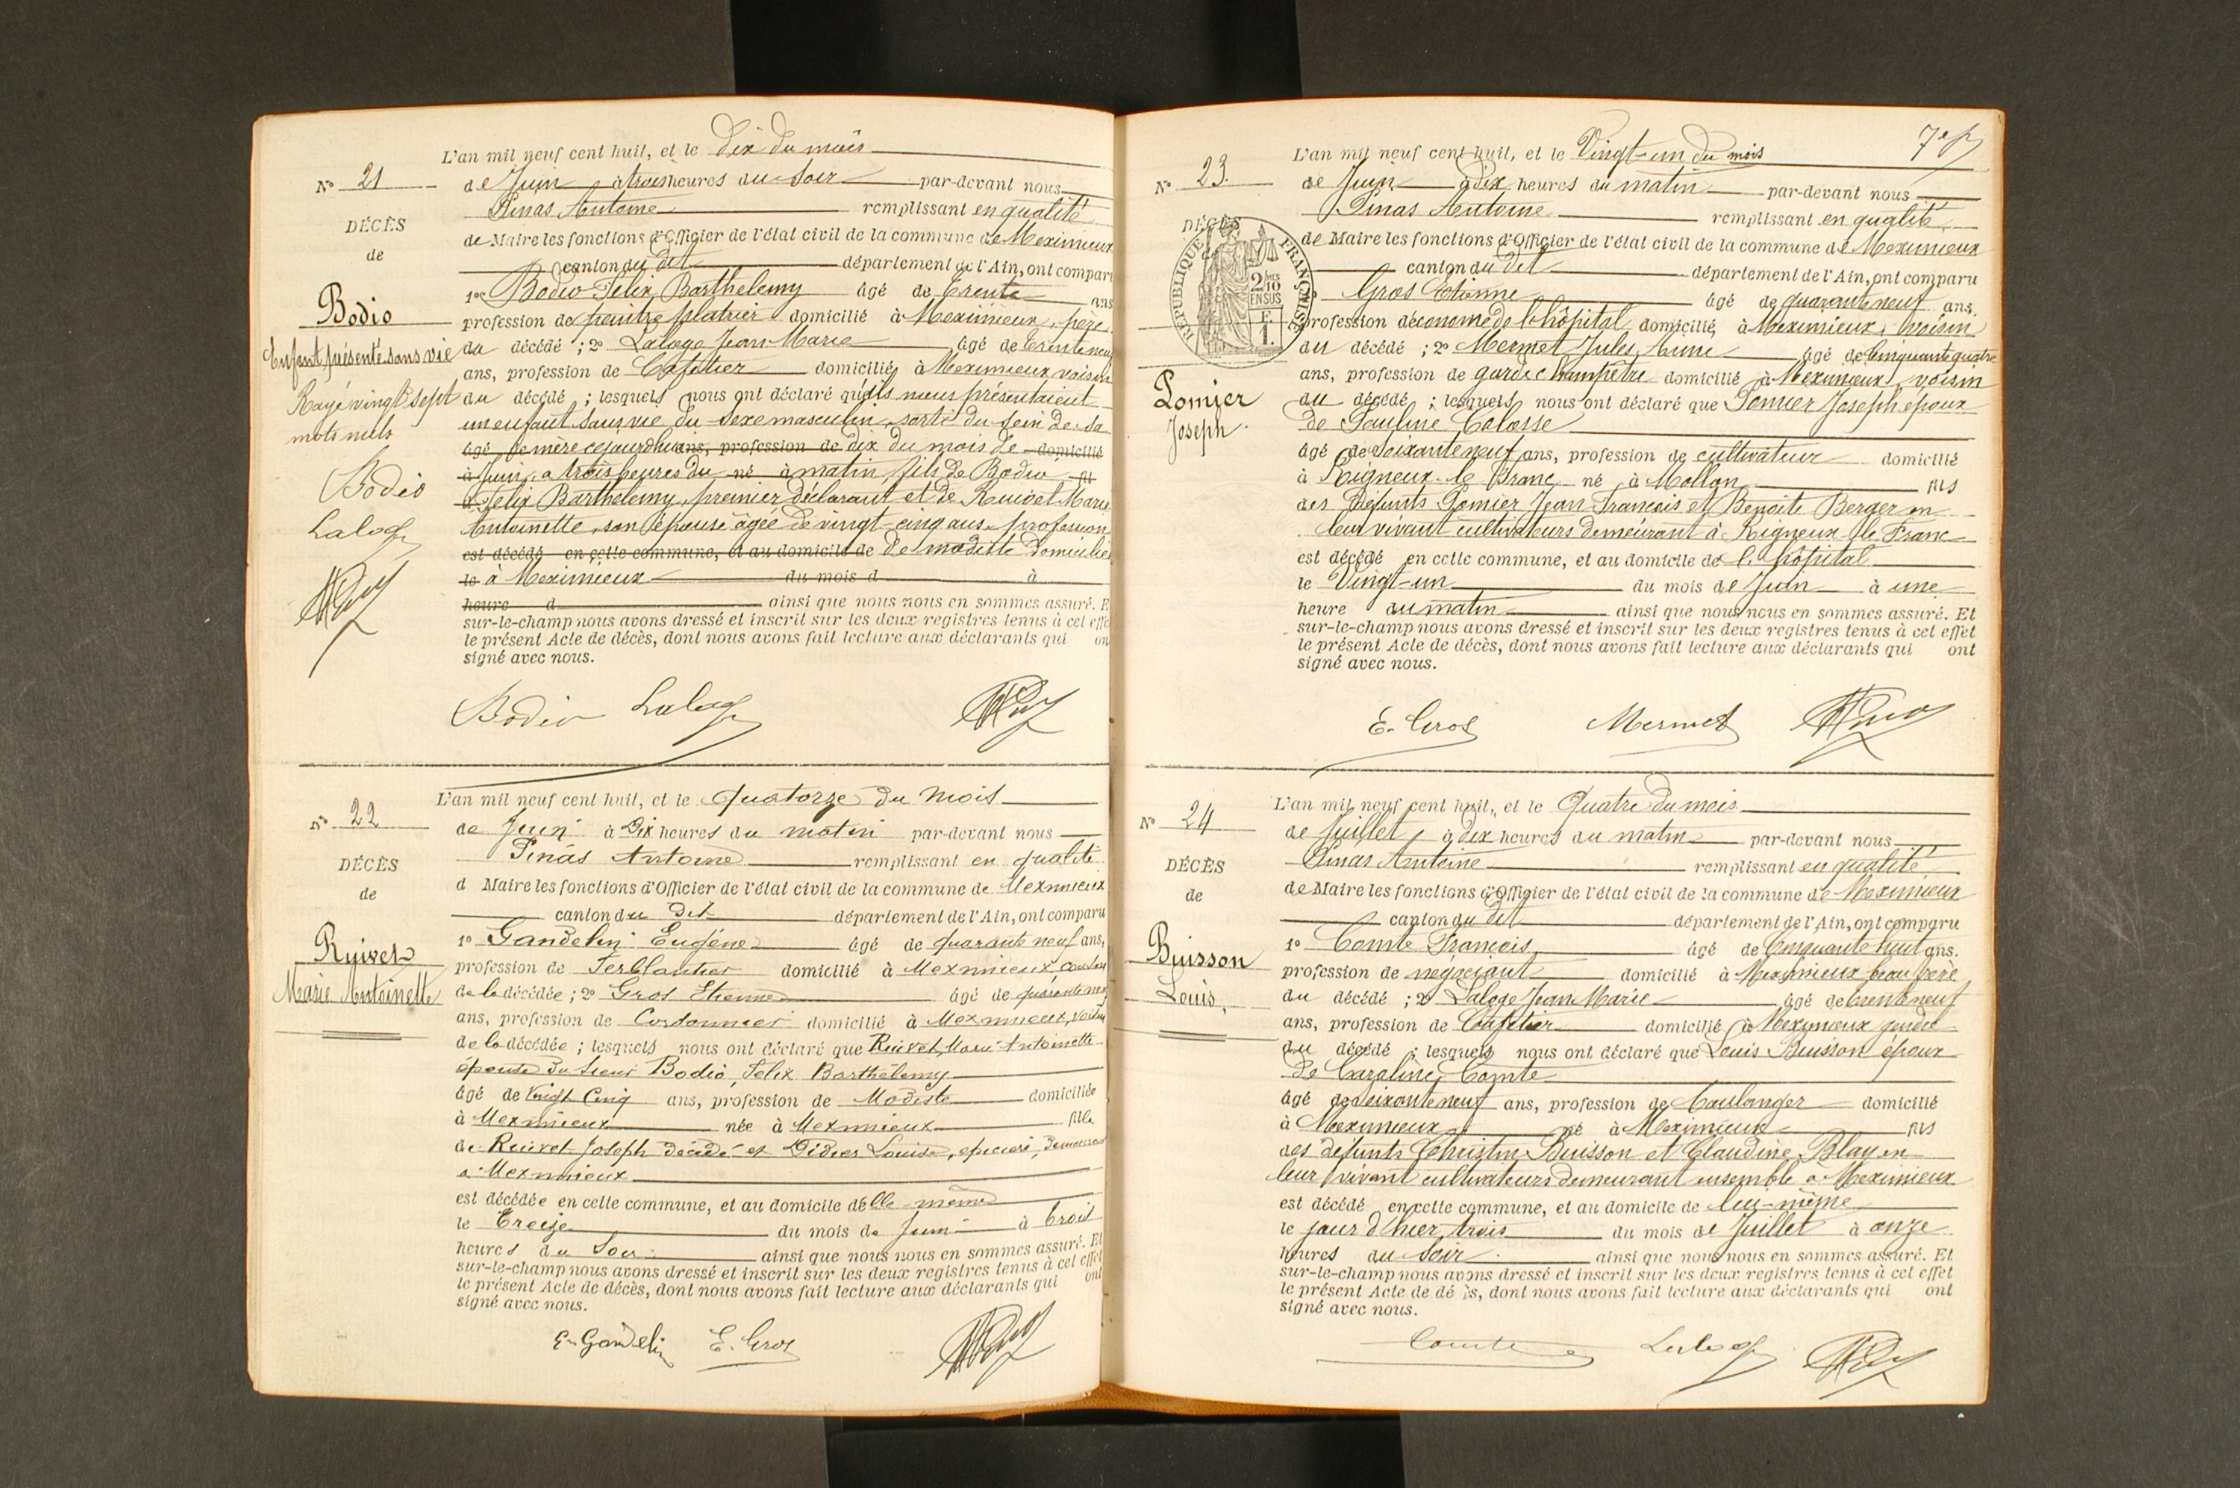 L'an mil neuf cent huit, et le Dix du mois
N° 21
de Juin à trois heures du soir par-devant nous
Pinas Antoine remplissant en qualité
DÉCÈS
de Maire les fonctions d'Officier de l'état civil de la commune de Meximieux
de
canton du dit département de l'Ain, ont comparu
1° Bodio Félix Barthelemy âgé de trente ans
Bodio
profession de peintre platrier domicilié à Meximieux, père
Enfant présenté sans vie
du décédé ; 2° Laloge Jean Marie âgé de trente neuf
ans, profession de Cafetier domicilié à Meximieux voisin
Rayé vingt sept
mots nuls
du décédé ; lesquels nous ont déclaré qu'ils nous présentaient
un enfant sans vie du sexe masculin, sorti du sein de sa
âgé de mère cejourd'hui ans, profession de dix du mois de domicilié
à Juin, à trois heures du né à matin, fils de Bodio fil
Bodio
d Félix Barthelemy, premier déclarant et de Ruivet Marie
Laloge
Antoinette, son épouse âgée de vingt-cinq ans, profession
est décédé en cette commune, et au domicile de de modiste domiciliée
le à Meximieux du mois d à
heure d ainsi que nous nous en sommes assuré. E
sur-le-champ nous avons dressé et inscrit sur les deux registres tenus à cet effe
le présent Acte de décès, dont nous avons fait lecture aux déclarants qui on
signé avec nous.
Bodio Laloge
L'an mil neuf cent huit, et le Quatorze du mois
N° 22
de Juin à Dix heures du matin par-devant nous
Pinas Antoine remplissant en qualité
DÉCÈS
d Maire les fonctions d'Officier de l'état civil de la commune de Meximieux
de
canton du Dit département de l'Ain, ont comparu
Ruivet
1° Gandelin Eugène âgé de quarante neuf ans,
profession de Ferblantier domicilié à Meximieux, cousin
Marie Antoinette
de la décédée ; 2° Gros Etienne âgé de quarante neuf
ans, profession de Cordonnier domicilié à Meximieux, voisin
de la décédée ; lesquels nous ont déclaré que Ruivet, Marie Antoinette
épouse du Sieur Bodio, Félix Barthélemy
âgé de vingt Cinq ans, profession de Modiste domiciliée
à Meximieux née à Meximieux fille
de Ruivet Joseph décédé et Didier Louise, epicière, demeurant
à Meximieux
est décédée en cette commune, et au domicile d'elle-même
le treize du mois de Juin à trois
heures du Soir ainsi que nous nous en sommes assuré. Et
sur-le-champ nous avons dressé et inscrit sur les deux registres tenus à cet effet
le présent Acte de décès, dont nous avons fait lecture aux déclarants qui ont
signé avec nous.
E. Gandelin E. Gros
7e
L'an mil neuf cent huit, et le Vingt-un du mois
N° 23.
de Juin à Dix heures du matin par-devant nous
Pinas Antoine remplissant en qualité
DÉCÈS
de Maire les fonctions d'Officier de l'état civil de la commune de Meximieux
RÉPUBLIQUE FRANÇAISE
2/10 EN SUS
F. 1.
canton du dit département de l'Ain, ont comparu
Gros Etienne âgé de quarante neuf ans.
profession d'économe de l'hôpital domicilié à Meximieux, voisin
du décédé ; 2° Mermet Jules Aimé âgé de Cinquante quatre
ans, profession de garde champêtre domicilié à Meximieux, voisin
Pomier
Joseph.
du décédé ; lesquels nous ont déclaré que Pomier Joseph époux
de Pauline Calasse
âgé de soixante neuf ans, profession de cultivateur domicilié
à Rigneux-le-Franc né à Mollon fils
des Défunts Pomier Jean François et Benoite Berger en
leur vivant cultivateurs demeurant à Rigneux-le-Franc
est décédé en cette commune, et au domicile de l'hôpital
le Vingt-un du mois de Juin à une
heure du matin ainsi que nous nous en sommes assuré. Et
sur-le-champ nous avons dressé et inscrit sur les deux registres tenus à cet effet
le présent Acte de décès, dont nous avons fait lecture aux déclarants qui ont
signé avec nous.
E. Gros Mermet
L'an mil neuf cent huit, et le Quatre du mois
N° 24
de Juillet, à dix heures du matin par-devant nous
Pinas Antoine remplissant en qualité
DÉCÈS
de Maire les fonctions d'Officier de l'état civil de la commune de Meximieux
de
canton du dit département de l'Ain, ont comparu
Buisson
1° Comte François âgé de Cinquante huit ans.
profession de négociant domicilié à Meximieux beau frère
Louis,
du décédé ; 2° Laloge Jean Marie âgé de trente neuf
ans, profession de Cafetier domicilié à Meximieux gendre
du décédé ; lesquels nous ont déclaré que Louis Buisson époux
de Caroline Comte
âgé de soixante neuf ans, profession de boulanger domicilié
à Meximieux né à Meximieux fils
des défunts Christin Buisson et Claudine Blay en
leur vivant cultivateurs demeurant ensemble à Meximieux
est décédé en cette commune, et au domicile de lui-même
le jour d'hier, trois du mois de Juillet à onze
heures du soir ainsi que nous nous en sommes assuré. Et
sur-le-champ nous avons dressé et inscrit sur les deux registres tenus à cet effet
le présent Acte de dé ès, dont nous avons fait lecture aux déclarants qui ont
signé avec nous.
Comte Laloge